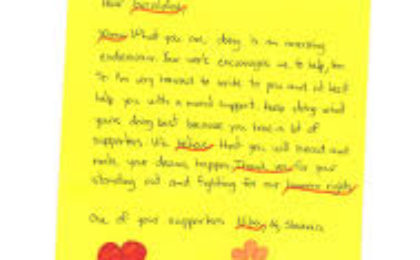 Dear
What you are doing is an amazing
endeavour. Your work encourages us to help, too
So I'm very honored to write to you and at least
help you with a moral support. Keep doing what
you're doing best because you have a lot of
supporters. We believe that you will succeed and
make your dreams happen. Thank you for your
standing out and fighting for our human rights
One of your supporters